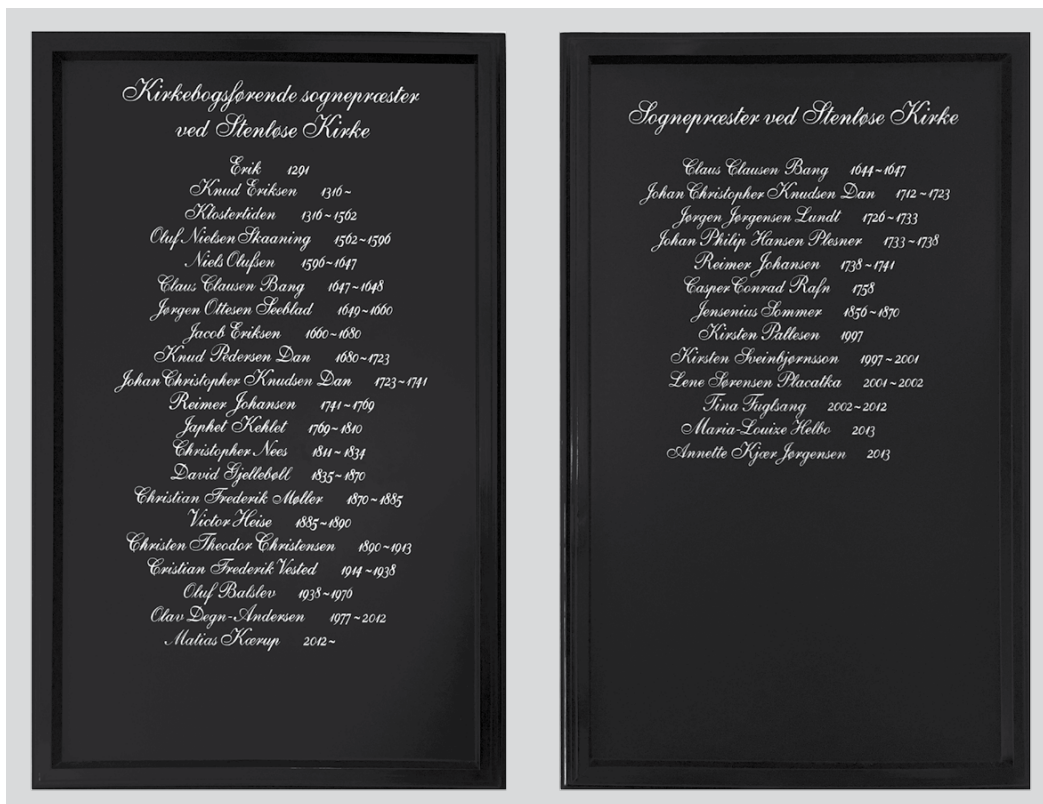 Kirkebogsførende sognepræster
ved Stenløse Kirke
Erik 1291
Knud Eriksen 1316~
Klostertiden 1316~1562
Oluf Nielsen Skaaning 1562~1596
Niels Olufsen 1596~1647
Claus Clausen Bang 1647~1648
Jørgen Ottesen Seeblad 1649~1660
Jacob Eriksen 1660~1680
Knud Pedersen Dan 1680~1723
Johan Christopher Knudsen Dan 1723~1741
Reimer Johansen 1741~1769
Japhet Kehlet 1769~1810
Christopher Nees 1811~1834
David Gjellebøll 1835~1870
Christian Frederik Møller 1870~1885
Victor Heise 1885~1890
Christen Theodor Christensen 1890~1913
Cristian Frederik Vested 1914~1938
Oluf Balslev 1938~1976
Olav Degn-Andersen 1977~2012
Matias Kærup 2012~
Sognepræster ved Stenløse Kirke
Claus Clausen Bang 1644~1647
Johan Christopher Knudsen Dan 1712~1723
Jørgen Jørgensen Lundt 1726~1733
Johan Philip Hansen Plesner 1733~1738
Reimer Johansen 1738~1741
Casper Conrad Rafn 1758
Jensenius Sommer 1856~1870
Kirsten Pallesen 1997
Kirsten Sveinbjørnsson 1997~2001
Lene Sørensen Placatka 2001~2002
Tina Fuglsang 2002~2012
Maria-Louize Helbo 2013
Annette Kjær Jørgensen 2013